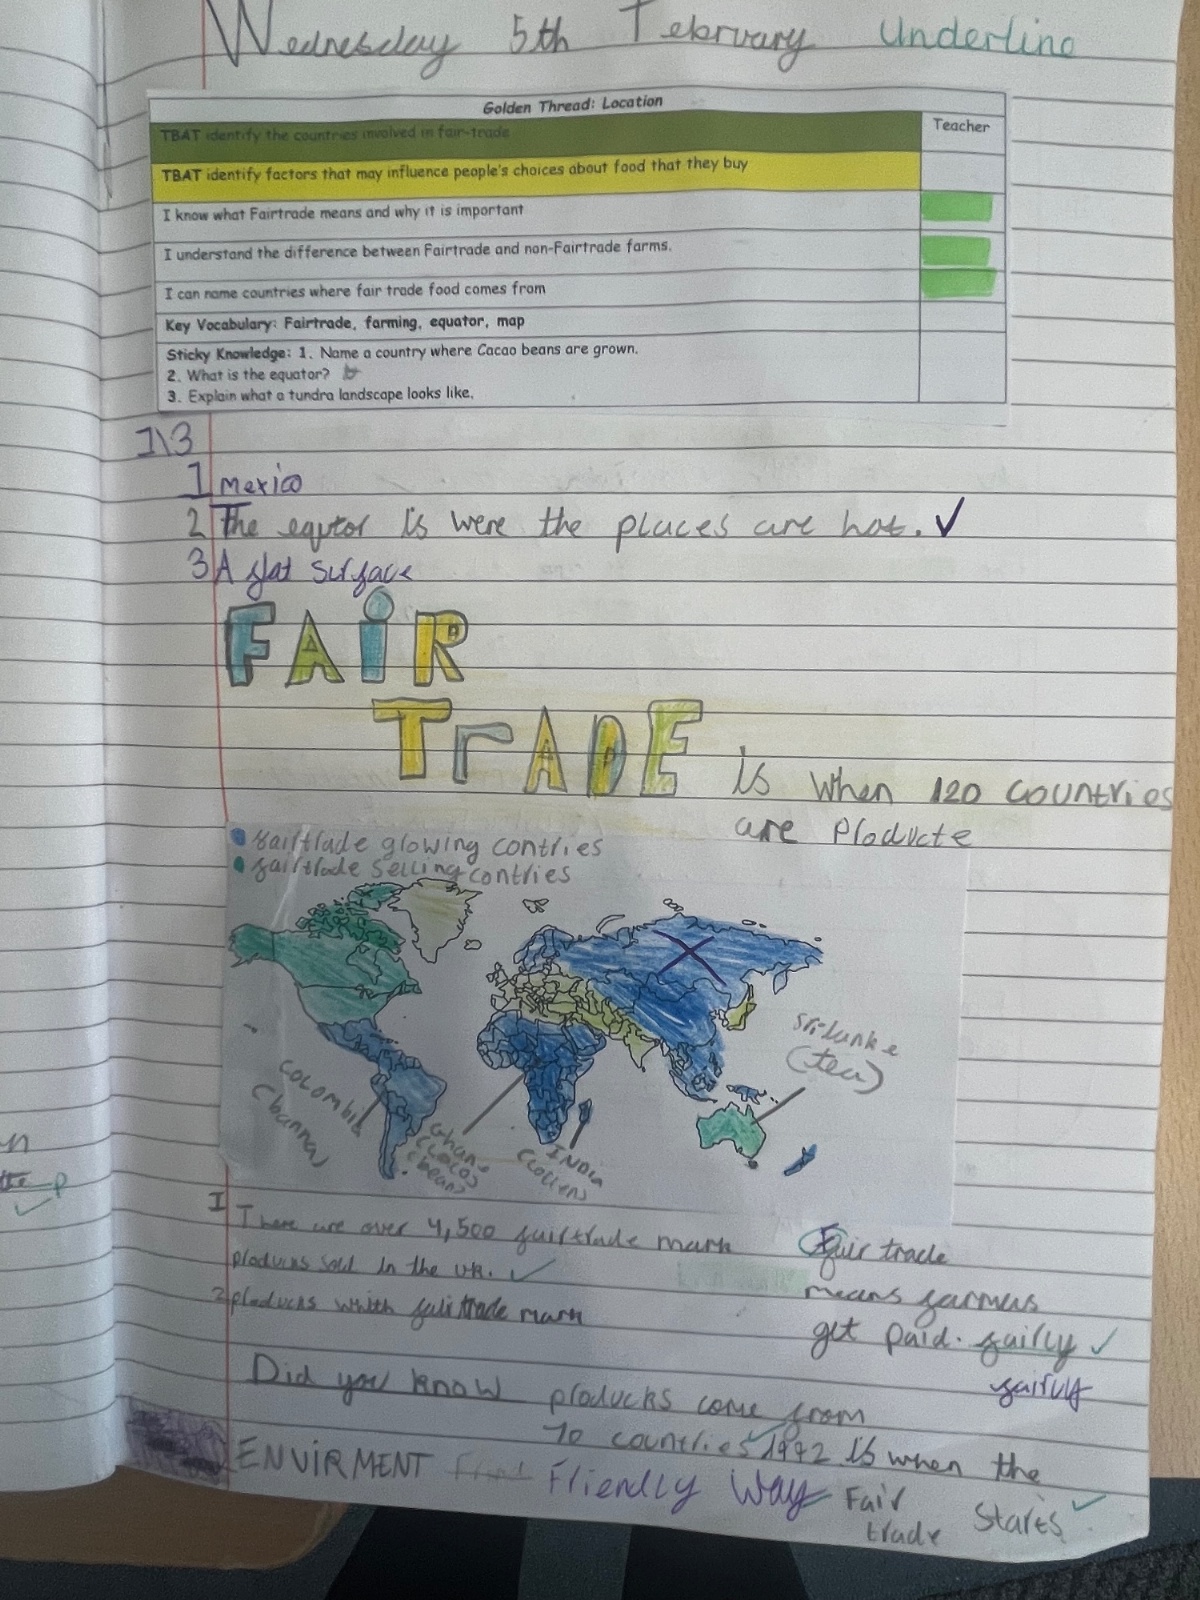 Wednesday 5th February Underline
Golden Thread: Location
TBAT identify the countries involved in fair-trade
Teacher
TBAT identify factors that may influence people's choices about food that they buy
I know what Fairtrade means and why it is important
I understand the difference between Fairtrade and non-Fairtrade farms.
I can name countries where fair trade food comes from
Key Vocabulary: Fairtrade, farming, equator, map
Sticky Knowledge: 1. Name a country where Cacao beans are grown.
2. What is the equator?
3. Explain what a tundra landscape looks like.
1\3
1 Mexico
2 The equtor is were the places are hot. ✓
3 A flat surface
FAiR
TrADE is when 120 countries
are Producte
fairtrade growing contries
fairtrade selling contries
Sri-lanke
(tea)
COLOMBIA
(banna)
Ghana
(cocos
(beans)
INDIA
1 There are over 4,500 fairtrade mark
producks sold in the UK. ✓
2 producks whith fairtrade mark
Fair trade
means farmus
get paid. fairly ✓
fairly
Did you know producks come from
70 countries 1992 is when the
ENVIRMENT Friendly Way Fair
trade starts ✓